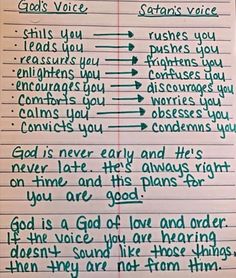 God's Voice Satan's voice
• Stills you → rushes you
• leads you → pushes you
• reassures you → frightens you
• enlightens you → confuses you
• encourages you → discourages you
• Comforts you → worries you
• calms you → obsesses you
• Convicts you → condemns you
God is never early and He's
never late. He's always right
on time and His plans for
you are good.
God is a God of love and order.
If the voice you are hearing
doesn't sound like those things,
then they are not from Him.